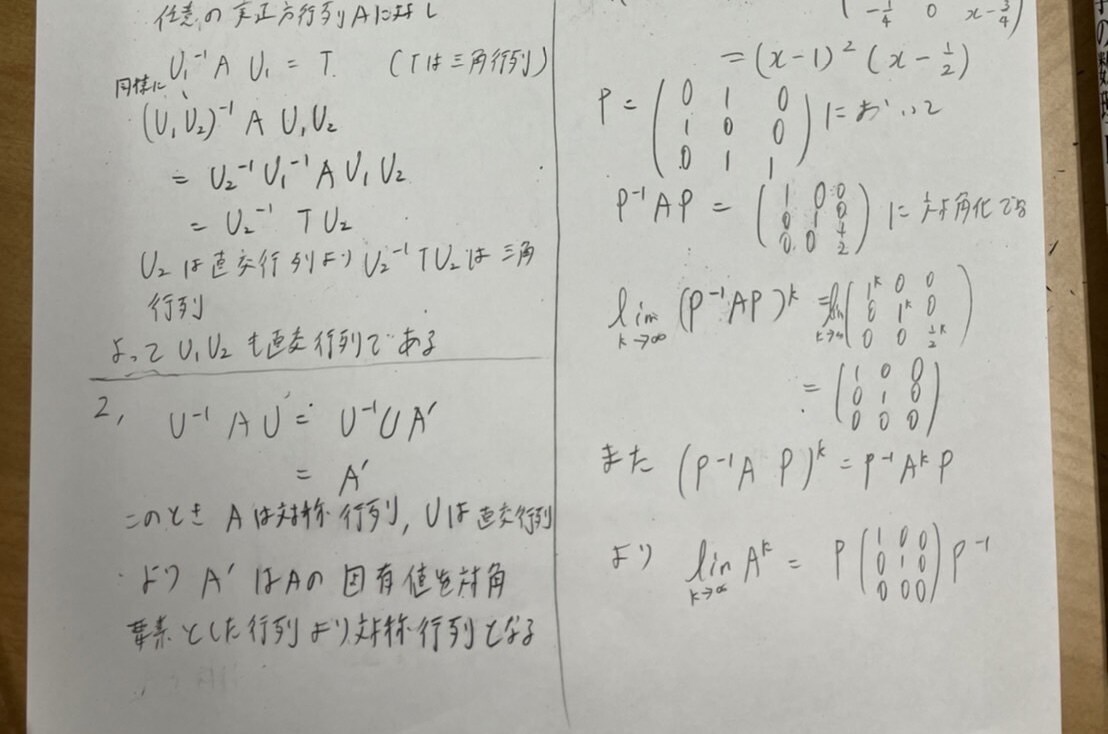 任意の実正方行列Aに対し
U₁⁻¹ A U₁ = T. (Tは三角行列)
同様に
(U₁U₂)⁻¹ A U₁U₂
= U₂⁻¹ U₁⁻¹ A U₁ U₂
= U₂⁻¹ T U₂
U₂は直交行列よりU₂⁻¹TU₂は三角
行列
よってU₁U₂も直交行列である
2,
U⁻¹ A U = U⁻¹UA'
= A'
このとき Aは対称行列, Uは直交行列
より A'はAの固有値を対角
要素とした行列より対称行列となる
-1/4 0 x-3/4)
= (x-1)² (x-1/2)
P = (0 1 0
1 0 0
0 1 1) において
P⁻¹AP = (1 0 0
0 1 0
0 0 1/2) に対角化でき
lim k→∞ (P⁻¹AP)ᵏ = lim k→∞ (1ᵏ 0 0
0 1ᵏ 0
0 0 1/2ᵏ)
= (1 0 0
0 1 0
0 0 0)
また (P⁻¹A P)ᵏ = P⁻¹AᵏP
より lim k→∞ Aᵏ = P(1 0 0
0 1 0
0 0 0)P⁻¹
の数理